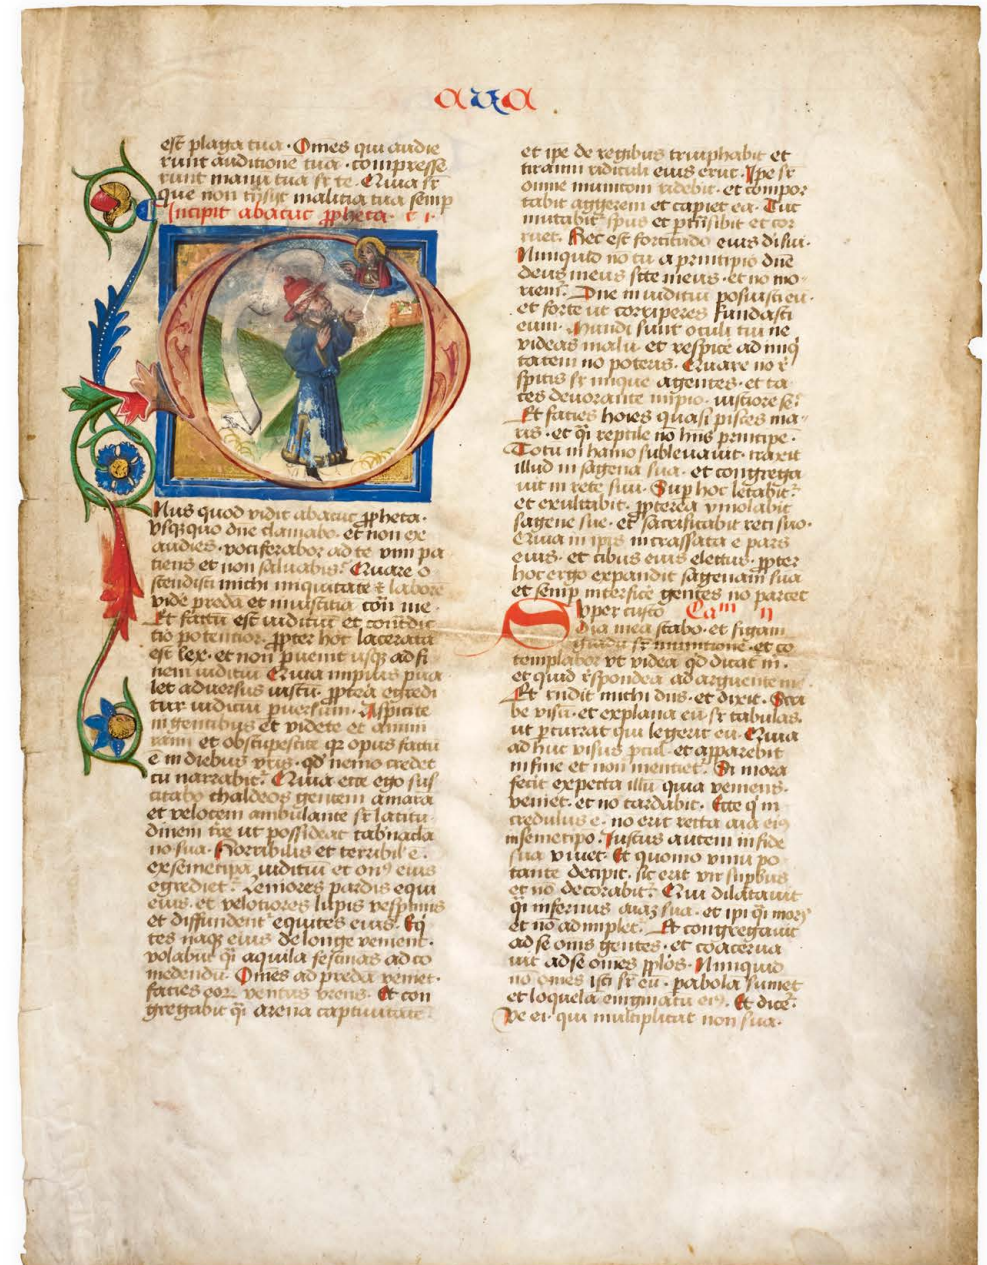 aua
est plaga tua · Omes qui audie
runt auditione tua · compresse
runt manu tua sr te · Quia sr
que non tnsijt malitia tua semp
Incipit abacuc ppheta · c i ·
O
Nus quod vidit abacuc ppheta ·
vsqzquo dne clamabo · et non ex
audies · vociferabor ad te vim pa
tiens et non saluabis · Quare o
stendisti michi iniquitate et labore
vide preda et iniusticia contra me ·
Et factu est iuditiu et contdic
tio potentior · ppter hoc lacerata
est lex · et non puenit usqz ad fi
nem iuditiu Quia impius pua
let aduersus iustu · pptea egredi
tur iuditiu puersum · Aspicite
in gentibus et videte et amira
mi et obstupescite qr opus factu
e in diebus vris · qd nemo credet
cu narrabit · Quia ecce ego sus
citabo chaldeos gentem amara
et velocem ambulante sr latitu
dinem tre ut possideat tabnacla
no sua · Horribilis et terribil e ·
ex semetipa iuditiu et on9 eius
egrediet · Leuiores pardis equi
eius · et velociores lupis vesptinis
et diffundent equites eius · Eq
tes naqz eius de longe venient ·
volabut qi aquila festinas ad co
medendu · Omes ad preda veniet ·
facies eor ventus vrens · Et con
gregabit qi arena captiuitate ·
et ipe de regibus triuphabit et
tiranni ridiculi eius erut · Ipe sr
omne munitom ridebit · et compor
tabit aggerem et capiet ea · Tuc
mutabit spus et ptnsibit et cor
ruet · Hec est fortitudo eius dei sui ·
Nunquid no tu a principio dne
deus meus scte meus · et no mo
riem · Dne in iuditiu posuisti eu ·
et forte ut corriperes fundasti
eum · Mundi sunt oculi tui ne
videas malu · et respice ad iniq
tatem no poteris · Quare no re
spicis sr inique agentes · et ta
ces deuorante impio iustiore se ·
Et facies hoies quasi pisces ma
ris · et qi reptile no hns principe ·
Totu in hamo subleuauit · traxit
illud in sagena sua · et congrega
uit in rete suu · Sup hoc letabit
et exultabit · ppterea ymolabit
sagene sue · et sacrificabit reti suo ·
Quia in ipis incrassata e pars
eius · et cibus eius electus · ppter
hoc ergo expandit sagenam sua
et semp interfice gentes no parcet
Super custo Cam ij
dia mea stabo · et figam
gradu sr munitione · et co
templabor vt videa qd dicat m ·
et quid respondea ad arguente me
Et rndit michi dns · et dixit · Scri
be visu · et explana eu sr tabulas
ut pcurrat qui legerit eu · Quia
adhuc visus pcul · et apparebit
in fine et non mentiet · Si mora
fecit expecta illu quia veniens ·
veniet · et no tardabit · Ecce q in
credulus e · no erit recta aia ei9
in semetipo · Iustus autem in fide
sua viuet · Et quomo vinu po
tante decipit · sic erit vir supbus
et no decorabit · Qui dilatauit
qi infernus aiaz sua · et ipe qi mors
et no adimplet · Et congregauit
ad se oms gentes · et coacerua
uit ad se omes pplos · Nunquid
no omes isti sr eu · pabola sumet
et loquela enigmatu ei9 · Et dicet
Ve ei · qui multiplicat non sua ·